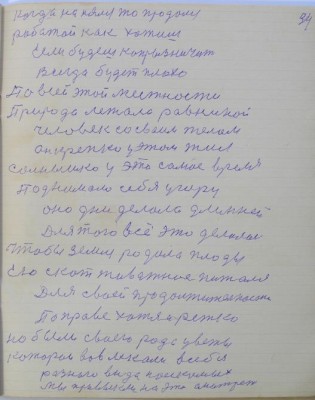 94
Когда на нями то продали
работай как хотиш
Если будеш капризничат
Всегда будет плохо
По всей этой местности
Природа лежало равниной
человек со своим телом
он крепко у этом жил
солнышко у это самое время
Поднимало себя угару
оно дни делало длинней
Для того всё это делалос
чтобы земля родила плоды
Его скот травою питался
Для своей продолжителности
По траве хотя редко
но были своего рода цветы
которои завлекали всебя
разного вида насекомых
мы привыкли на это смотрет